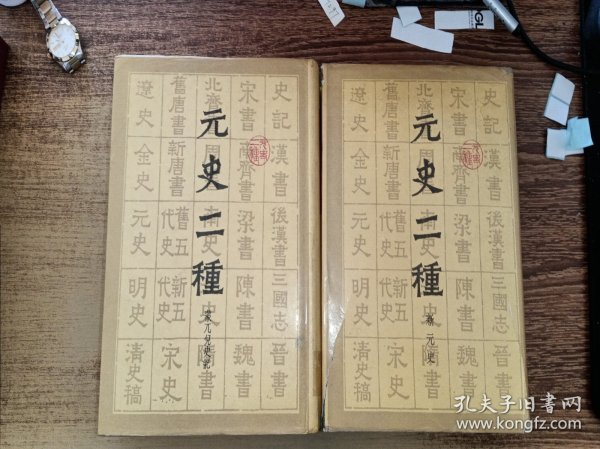 元史二種
蒙兀兒史記
史記
漢書
後漢書
三國志
晉書
宋書
南齊書
梁書
陳書
魏書
北齊
南史
史
書
舊唐書
新唐書
舊五代史
新五代史
宋史
遼史
金史
元史
明史
清史稿
元史二種
新元史
史記
漢書
後漢書
三國志
晉書
宋書
南齊書
梁書
陳書
魏書
北齊
史
書
舊唐書
新唐書
舊五代史
新五代史
宋史
遼史
金史
元史
明史
清史稿
GL
孔夫子旧书网
www.kongfz.com